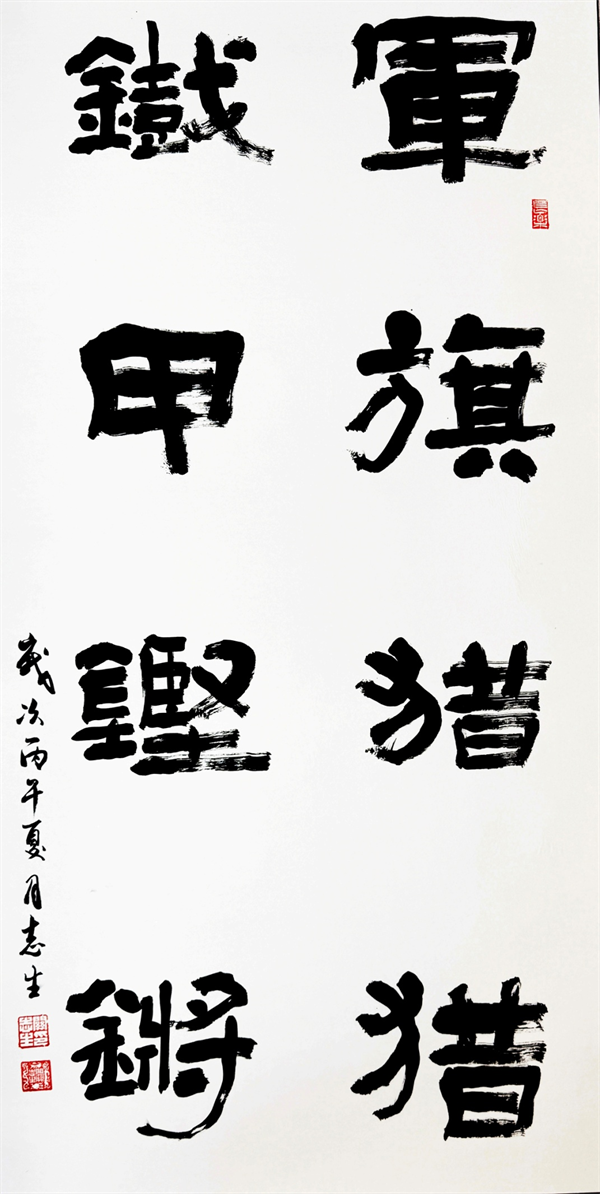 軍旗猎猎
鐵甲鏗鏘
歲次丙午夏月志生